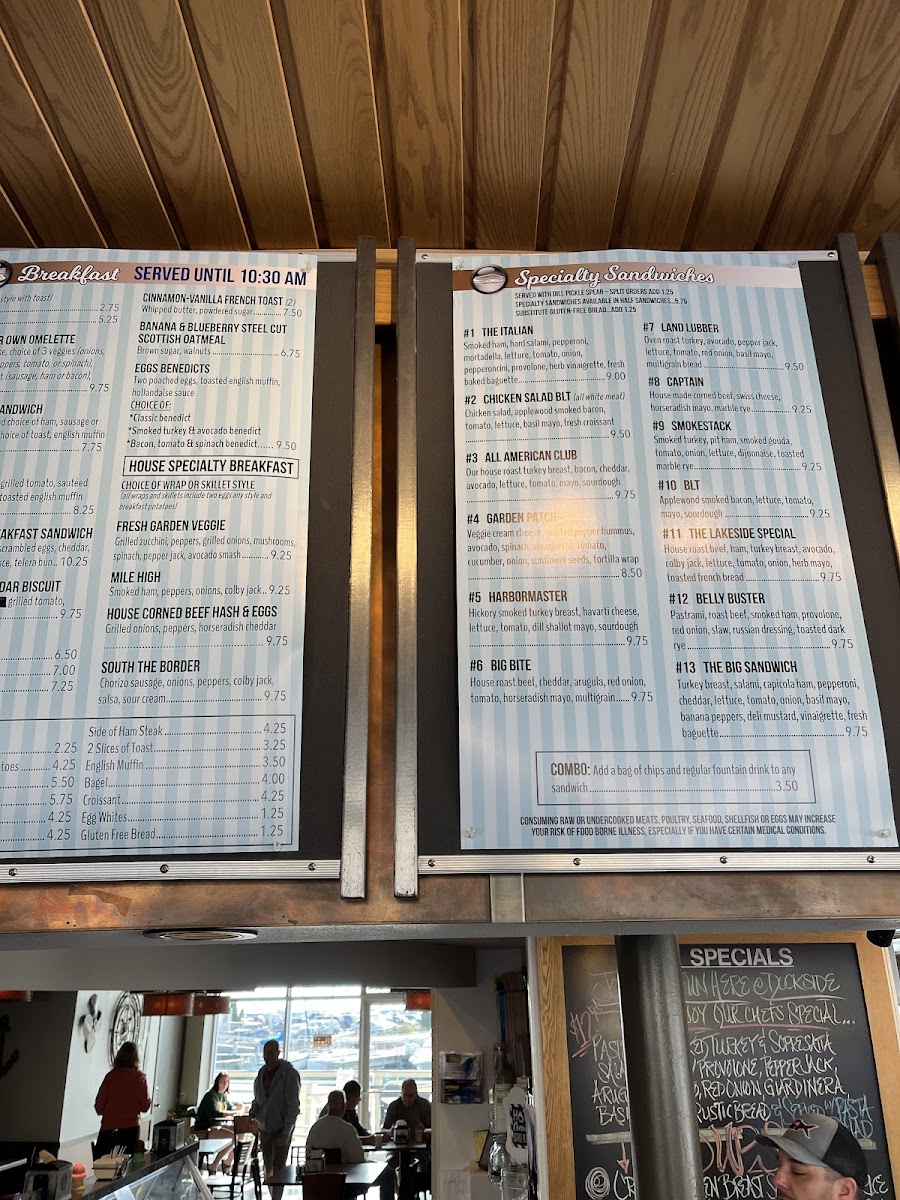 Breakfast SERVED UNTIL 10:30 AM
style with toast)
2.75
5.25
R OWN OMELETTE
se, choice of 3 veggies (onions,
ppers, tomato, or spinach),
t (sausage, ham or bacon),
9.75
ANDWICH
d choice of ham, sausage or
hoice of toast, english muffin
7.75
grilled tomato, sautéed
toasted english muffin
8.25
EAKFAST SANDWICH
scrambled eggs, cheddar,
ce, telera bun.. 10.25
DAR BISCUIT
grilled tomato,
9.75
6.50
7.00
7.25
CINNAMON-VANILLA FRENCH TOAST (2)
Whipped butter, powdered sugar 7.50
BANANA & BLUEBERRY STEEL CUT
SCOTTISH OATMEAL
Brown sugar, walnuts 6.75
EGGS BENEDICTS
Two poached eggs, toasted english muffin,
hollandaise sauce
CHOICE OF:
*Classic benedict
*Smoked turkey & avocado benedict
*Bacon, tomato & spinach benedict 9.50
HOUSE SPECIALTY BREAKFAST
CHOICE OF WRAP OR SKILLET STYLE
(all wraps and skillets include two eggs any style and
breakfast potatoes)
FRESH GARDEN VEGGIE
Grilled zucchini, peppers, grilled onions, mushrooms,
spinach, pepper jack, avocado smash 9.25
MILE HIGH
Smoked ham, peppers, onions, colby jack.. 9.25
HOUSE CORNED BEEF HASH & EGGS
Grilled onions, peppers, horseradish cheddar
9.75
SOUTH THE BORDER
Chorizo sausage, onions, peppers, colby jack,
salsa, sour cream 9.75
2.25
toes 4.25
5.50
5.75
4.25
4.25
Side of Ham Steak 4.25
2 Slices of Toast 3.25
English Muffin 3.50
Bagel 4.00
Croissant 4.25
Egg Whites 1.25
Gluten Free Bread 1.25
Specialty Sandwiches
SERVED WITH DILL PICKLE SPEAR – SPLIT ORDERS ADD 1.25
SPECIALTY SANDWICHES AVAILABLE IN HALF SANDWICHES...5.75
SUBSTITUTE GLUTEN-FREE BREAD...ADD 1.25
#1 THE ITALIAN
Smoked ham, hard salami, pepperoni,
mortadella, lettuce, tomato, onion,
pepperoncini, provolone, herb vinaigrette, fresh
baked baguette 9.00
#2 CHICKEN SALAD BLT (all white meat)
Chicken salad, applewood smoked bacon,
tomato, lettuce, basil mayo, fresh croissant
9.50
#3 ALL AMERICAN CLUB
Our house roast turkey breast, bacon, cheddar,
avocado, lettuce, tomato, mayo, sourdough
9.75
#4 GARDEN PATCH
Veggie cream cheese, roasted pepper hummus,
avocado, spinach, vinaigrette, tomato,
cucumber, onion, sunflower seeds, tortilla wrap
8.50
#5 HARBORMASTER
Hickory smoked turkey breast, havarti cheese,
lettuce, tomato, dill shallot mayo, sourdough
9.75
#6 BIG BITE
House roast beef, cheddar, arugula, red onion,
tomato, horseradish mayo, multigrain 9.75
#7 LAND LUBBER
Oven roast turkey, avocado, pepper jack,
lettuce, tomato, red onion, basil mayo,
multigrain bread 9.50
#8 CAPTAIN
House made corned beef, swiss cheese,
horseradish mayo, marble rye 9.25
#9 SMOKESTACK
Smoked turkey, pit ham, smoked gouda,
tomato, onion, lettuce, dijonnaise, toasted
marble rye 9.25
#10 BLT
Applewood smoked bacon, lettuce, tomato,
mayo, sourdough 9.25
#11 THE LAKESIDE SPECIAL
House roast beef, ham, turkey breast, avocado,
colby jack, lettuce, tomato, onion, herb mayo,
toasted french bread 9.75
#12 BELLY BUSTER
Pastrami, roast beef, smoked ham, provolone,
red onion, slaw, russian dressing, toasted dark
rye 9.75
#13 THE BIG SANDWICH
Turkey breast, salami, capicola ham, pepperoni,
cheddar, lettuce, tomato, onion, basil mayo,
banana peppers, deli mustard, vinaigrette, fresh
baguette 9.75
COMBO: Add a bag of chips and regular fountain drink to any
sandwich 3.50
CONSUMING RAW OR UNDERCOOKED MEATS, POULTRY, SEAFOOD, SHELLFISH OR EGGS MAY INCREASE
YOUR RISK OF FOOD BORNE ILLNESS, ESPECIALLY IF YOU HAVE CERTAIN MEDICAL CONDITIONS.
SPECIALS
UN HERE @ DOCKSIDE
OY OUR CHEFS SPECIAL...
TURKEY & SOPRESATA
PROVOLONE, PEPPER JACK,
RED ONION GIARDINERA
RUSTIC BREAD & SERVED W/ PASTA